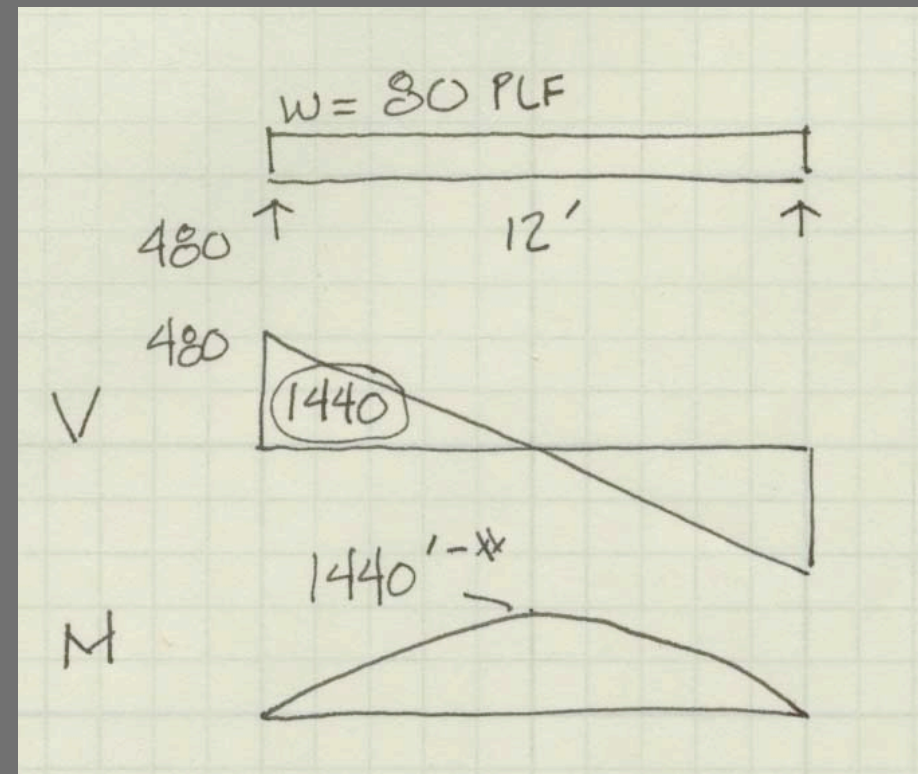 w = 80 PLF
480
12'
480
V
1440
1440'-#
M